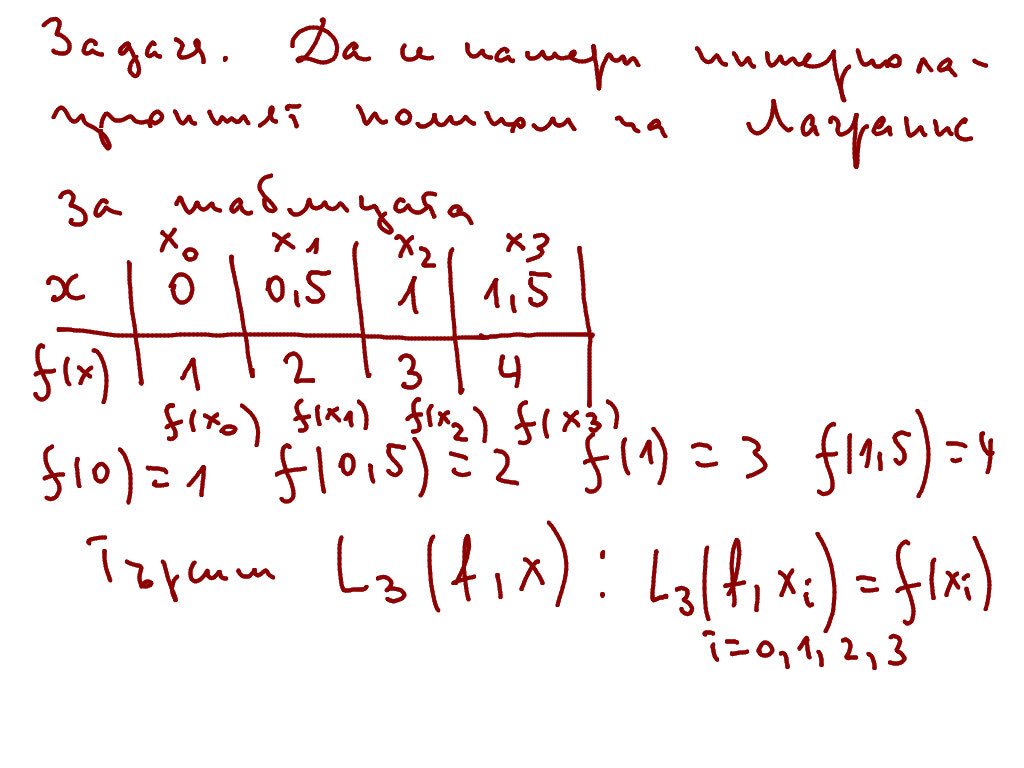 Задача. Да се намери интерпола-
ционният полином на Лагранж
за таблицата
x₀ x₁ x₂ x₃
x 0 0,5 1 1,5
f(x) 1 2 3 4
f(x₀) f(x₁) f(x₂) f(x₃)
f(0)=1 f(0,5)=2 f(1)=3 f(1,5)=4
Търсим L₃(f,x): L₃(f,xᵢ)=f(xᵢ)
i=0,1,2,3